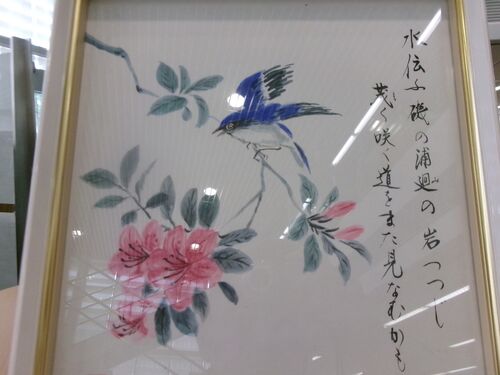 水伝ふ磯の浦廻の岩つつじ
茂く咲く道をまた見なむかも